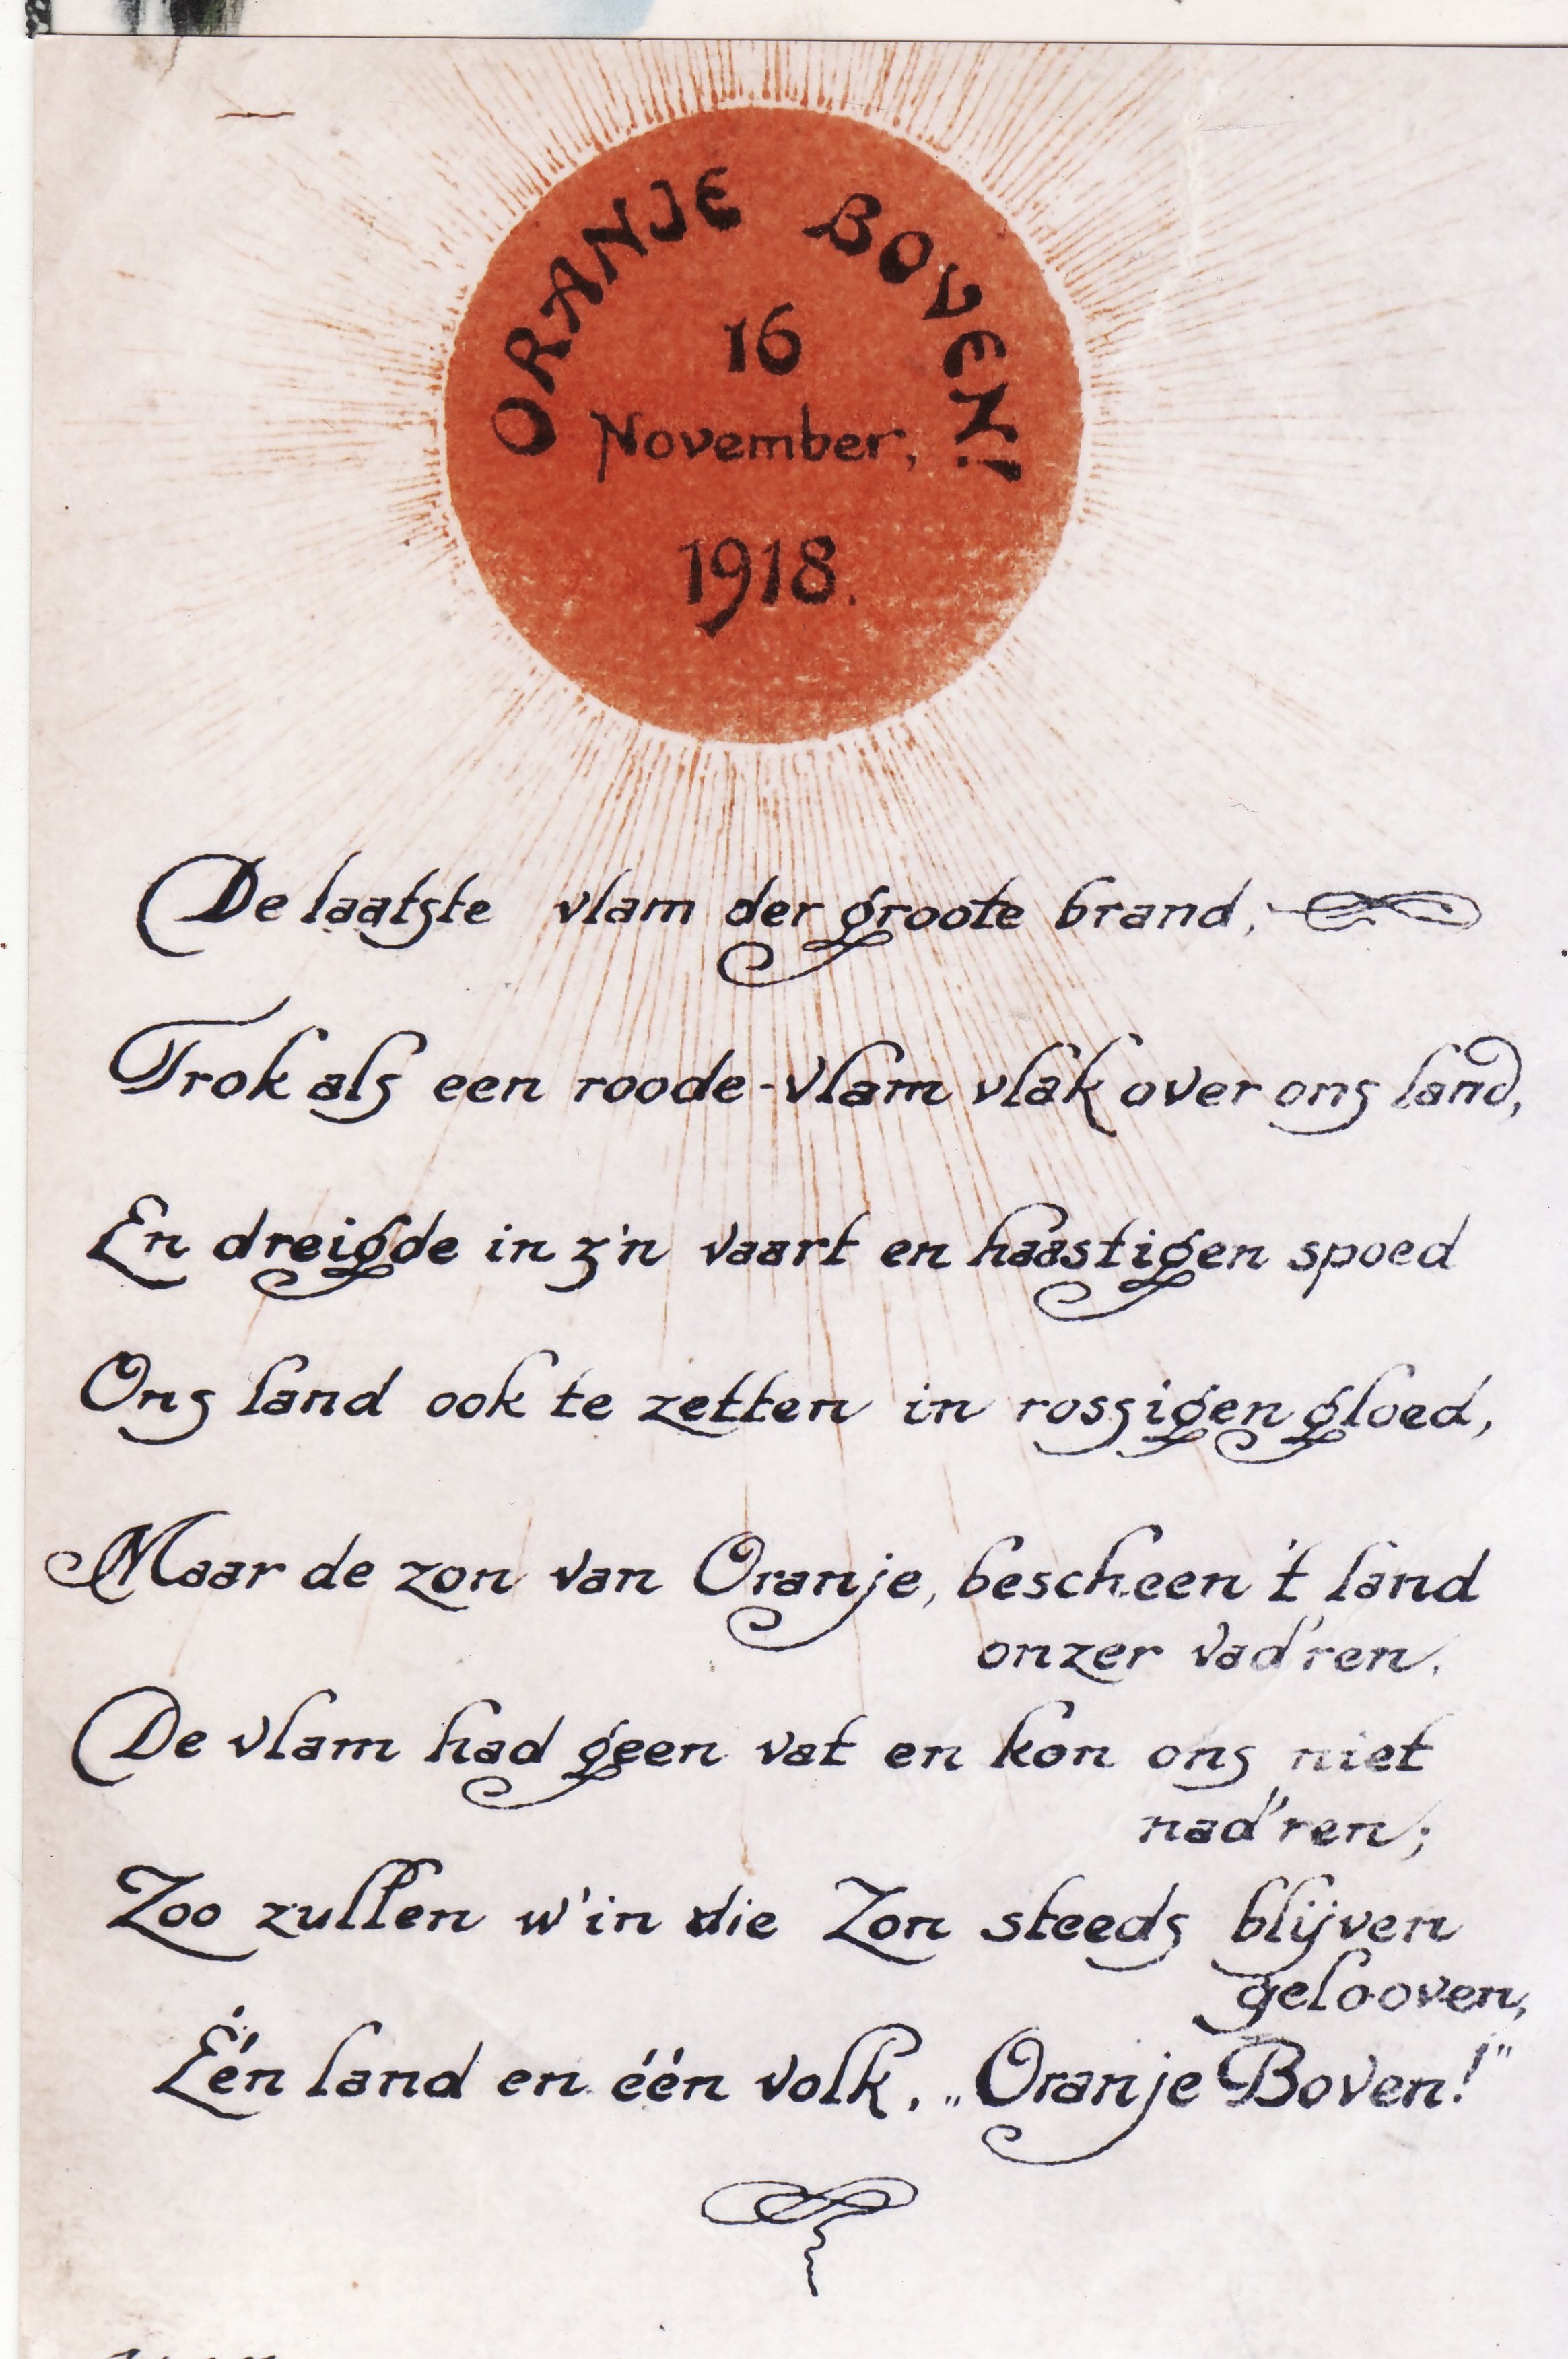 ORANJE BOVEN!
16
November,
1918.
De laatste vlam der groote brand,
Trok als een roode-vlam vlak over ons land,
En dreigde in z'n vaart en haastigen spoed
Ons land ook te zetten in rossigen gloed,
Maar de zon van Oranje, bescheen 't land
onzer vad'ren.
De vlam had geen vat en kon ons niet
nad'ren;
Zoo zullen w'in die Zon steeds blijven
gelooven,
Één land en één volk. „Oranje Boven!"